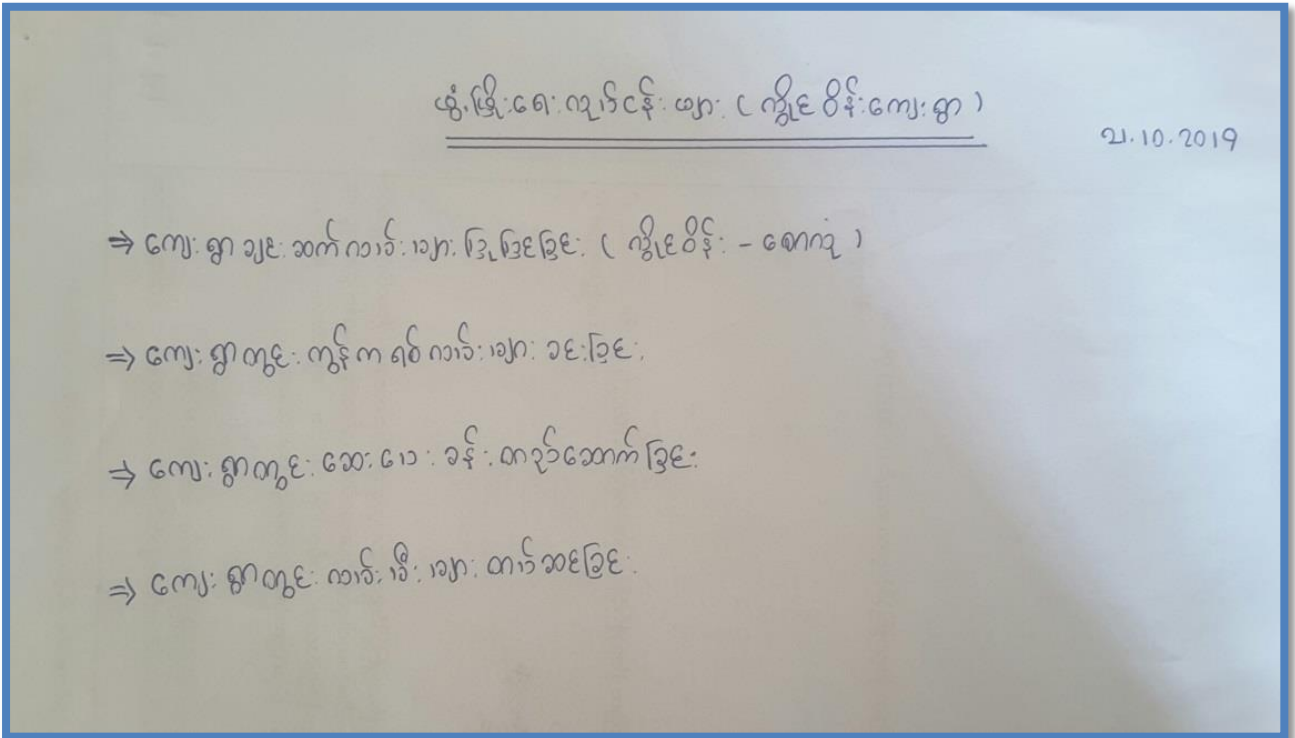 ဖွံ့ဖြိုးရေးလုပ်ငန်းများ (လှိုင်ဝိန်းကျေးရွာ)
21.10.2019
⇒ ကျေးရွာချင်းဆက်လမ်းများပြုပြင်ခြင်း (လှိုင်ဝိန်း - တောကူ)
⇒ ကျေးရွာတွင်း ကွန်ကရစ်လမ်းများ ခင်းခြင်း
⇒ ကျေးရွာတွင်း ဆေးပေးခန်း တည်ဆောက်ခြင်း
⇒ ကျေးရွာတွင်း လမ်းမီးများ တပ်ဆင်ခြင်း